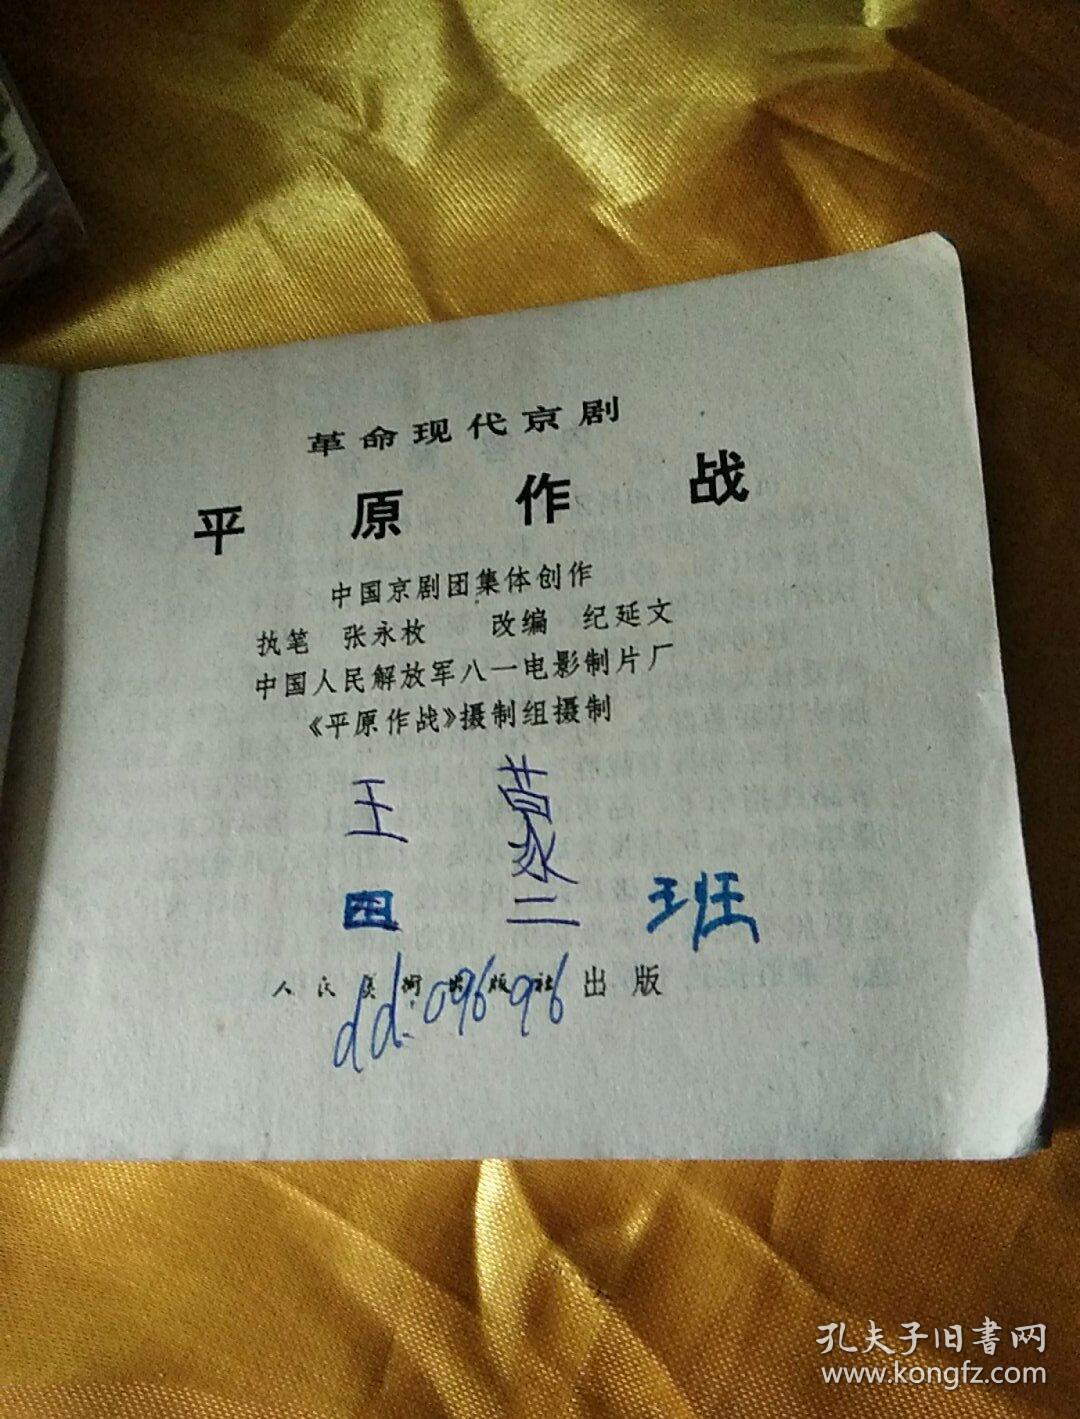 革命现代京剧
平原作战
中国京剧团集体创作
执笔 张永枚 改编 纪延文
中国人民解放军八一电影制片厂
《平原作战》摄制组摄制
王
二 班
人民美术出版社出版
dd.0969696
孔夫子旧書网
www.kongfz.com